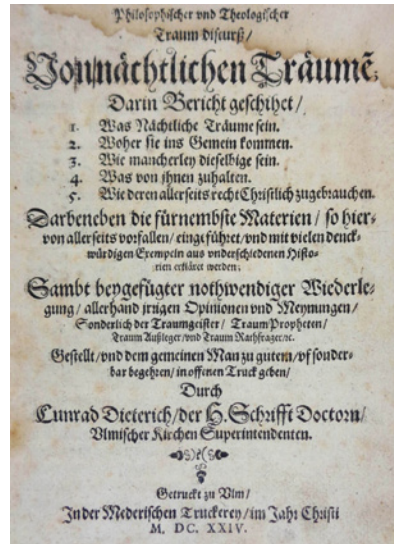 Philosophischer vnd Theologischer
Traum discurß/
Von nächtlichen Träumē,
Darin Bericht geschihet/
1. Was Nächtliche Träume sein.
2. Woher sie ins Gemein kommen.
3. Wie mancherley dieselbige sein.
4. Was von jhnen zuhalten.
5. Wie deren allerseits recht Christlich zugebrauchen.
Darbeneben die fürnembste Materien/ so hier-
von allerseits vorfallen/ eingeführet/ vnd mit vielen denck-
würdigen Exempeln aus vnderschiedenen Histo-
rien erkläret werden;
Sambt beygefügter nothwendiger Wiederle-
gung/ allerhand jrrigen Opinionen vnd Meynungen/
Sonderlich der Traumgeister/ TraumPropheten/
Traum Außleger/ vnd Traum Rathfrager/ ꝛc.
Gestellt/ vnd dem gemeinen Man zu gutem/ vf sonder-
bar begehren/ in offenen Truck geben/
Durch
Cunrad Dieterich/ der H. Schrifft Doctorn/
Vlmischer Kirchen Superintendenten.
Getruckt zu Vlm/
In der Mederischen Truckerey/ im Jahr Christi
M. DC. XXIV.